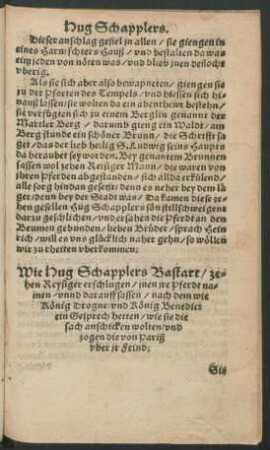 Hug Schapplers.
Dieser anschlag gefiel jn allen / sie giengen in
eines Harnischers Hauß / vnd bestalten da was
ein jeden von nöten was / vnd blieb jnen dennocht
vberig.
Als sie sich aber also bewapneten / giengen sie
zu der Pforten des Tempels / vnd hiessen sich hi-
nauß lassen / sie wolten da ein abentheur bestehn /
sie verfügten sich zu einem Berglin genannt der
Martler Berg / darumb gieng ein Waldt / am
Berg stunde ein schöner Brunn / die Schrifft sa-
get / das der lieb heilig S. Ludwig seins Haupts
da beraubet sey worden / Bey genantem Brunnen
sassen wol zehen Reisiger Mann / die waren von
jhren Pferden abgestanden / sich allda erkülend /
alle sorg hindan gesetzt / denn es neher bey dem lä-
ger / denn bey der Stadt was / Da kamen diese ze-
hen gesellen Hug Schapplers sün stillschweigent
darzu geschlichen / vnd ersahen die Pferdt an den
Beumen gebunden / lieben Brüder / sprach Hein-
rich / will es vns glücklich naher gehn / so wöllen
wir zu thetten vberkommen;
Wie Hug Schapplers Bastart / ze-
hen Reysiger erschlugen / jnen jre Pferdt na-
men / vnnd darauff sassen / nach dem wie
König Drogne / vnd König Benedict
ein Gesprech hetten / wie sie die
sach anschicken wolten / vnd
zogen die von Pariß
vber jr Feind;
Sie